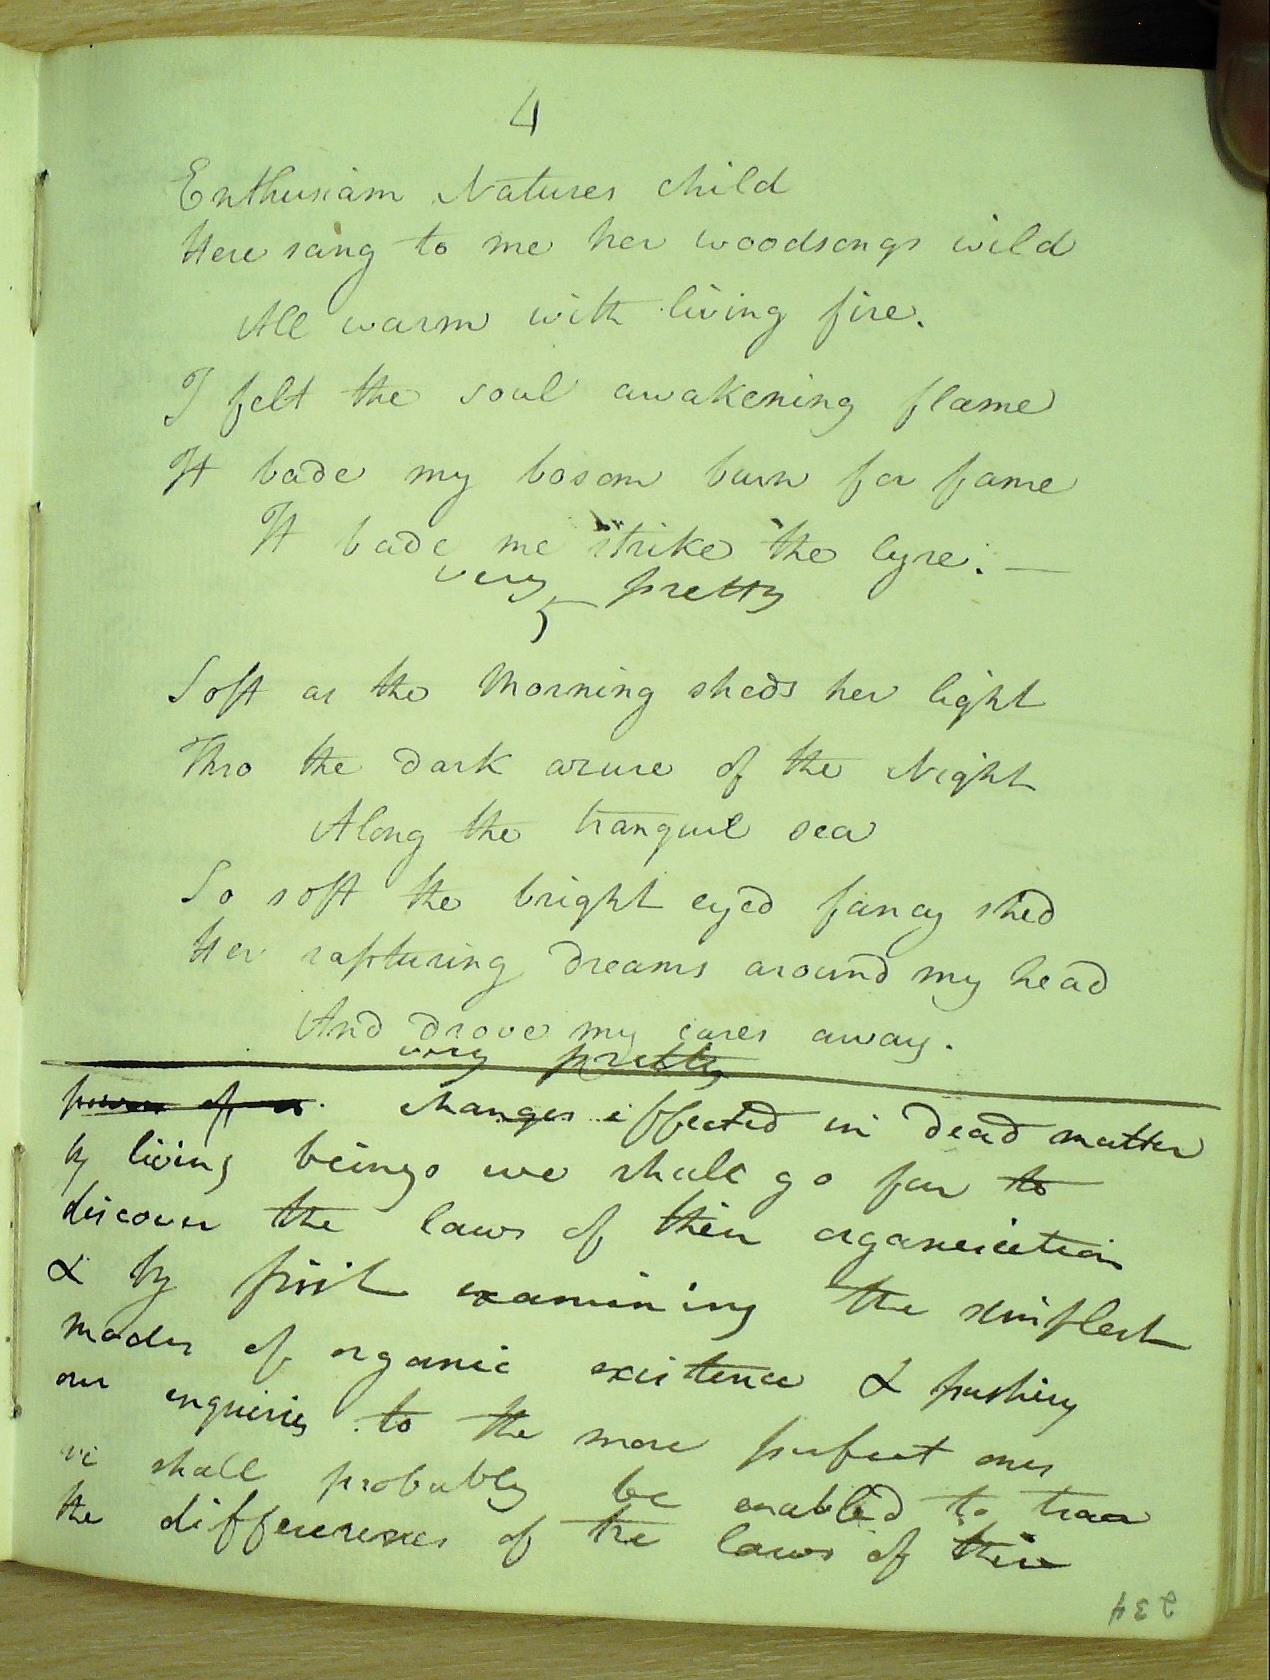 4
Enthusiasm Natures child
Here sang to me her woodsongs wild
All warm with living fire.
I felt the soul awakening flame
It bade my bosom burn for fame
It bade me strike the lyre. —
very pretty
5
Soft as the Morning sheds her light
Thro the dark azure of the Night
Along the tranquil sea
So soft the bright eyed fancy shed
Her rapturing dreams around my head
And drove my cares away.
very pretty
power of a. changes effected in dead matter
by living beings we shall go far to
discover the laws of their organisation
& by first examining the simplest
modes of organic existence & pushing
our enquiries to the more perfect ones
we shall probably be enabled to trace
the differences of the laws of their
234